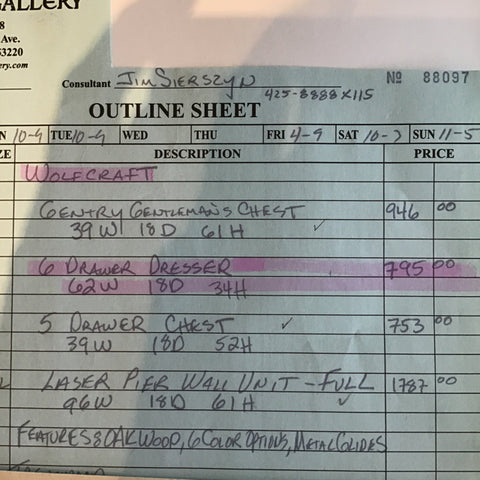 GALLERY
8
Ave.
53220
ery.com
Consultant Jim Sierszyn
No 88097
425-8888 x115
OUTLINE SHEET
N 10-9 TUE 10-9 WED THU FRI 4-9 SAT 10-3 SUN 11-5
ZE DESCRIPTION PRICE
WOLFCRAFT
GENTRY GENTLEMAN'S CHEST 946 00
39W 18D 61H ✓
6 DRAWER DRESSER 795 00
62W 18D 34H
5 DRAWER CHEST ✓ 753 00
39W 18D 52H
LASER PIER WALL UNIT - FULL 1787 00
96W 18D 61H ✓
FEATURES: OAK WOOD, 6 COLOR OPTIONS, METAL GLIDES